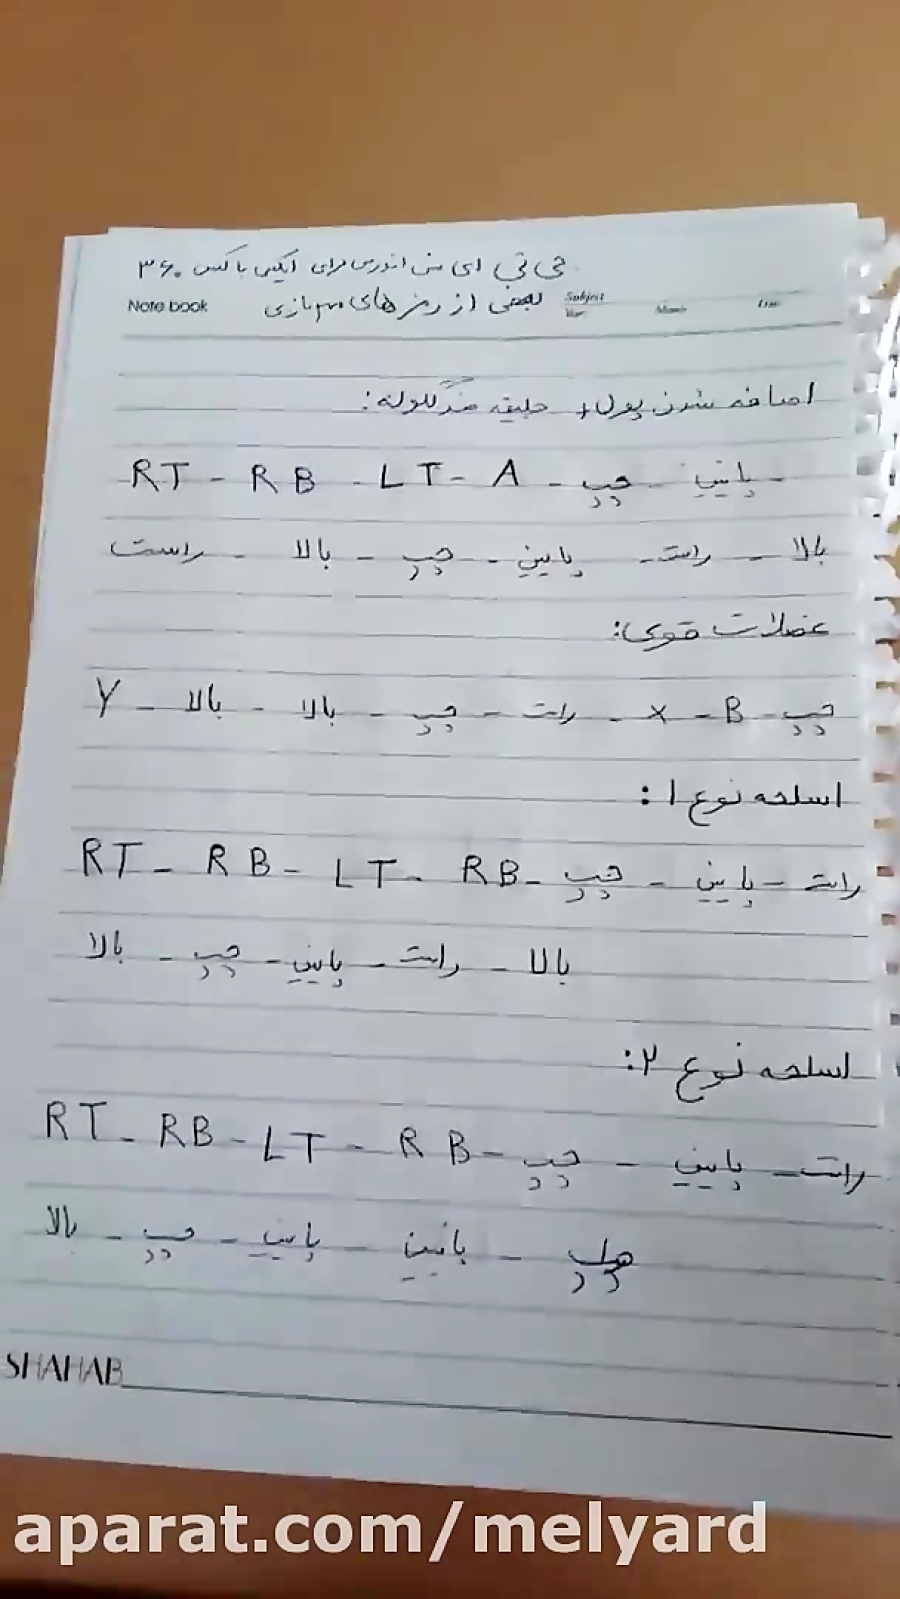 جی تی ای سن اندرس برای ایکس باکس ۳۶۰
Note book بعضی از رمز های بازی Subject
اضافه شدن پول و جلیقه ضدگلوله:
RT - RB - LT - A - چپ - پایین -
بالا - راست - پایین - چپ - بالا - راست
عضلات قوی:
چپ - B - X - راست - چپ - بالا - بالا - Y
اسلحه نوع ۱:
RT - RB - LT - RB - چپ - پایین - راست
بالا - راست - پایین - چپ - بالا
اسلحه نوع ۲:
RT - RB - LT - RB - چپ - پایین - راست
بالا - چپ - پایین - پایین - چپ
SHAHAB
aparat.com/melyard